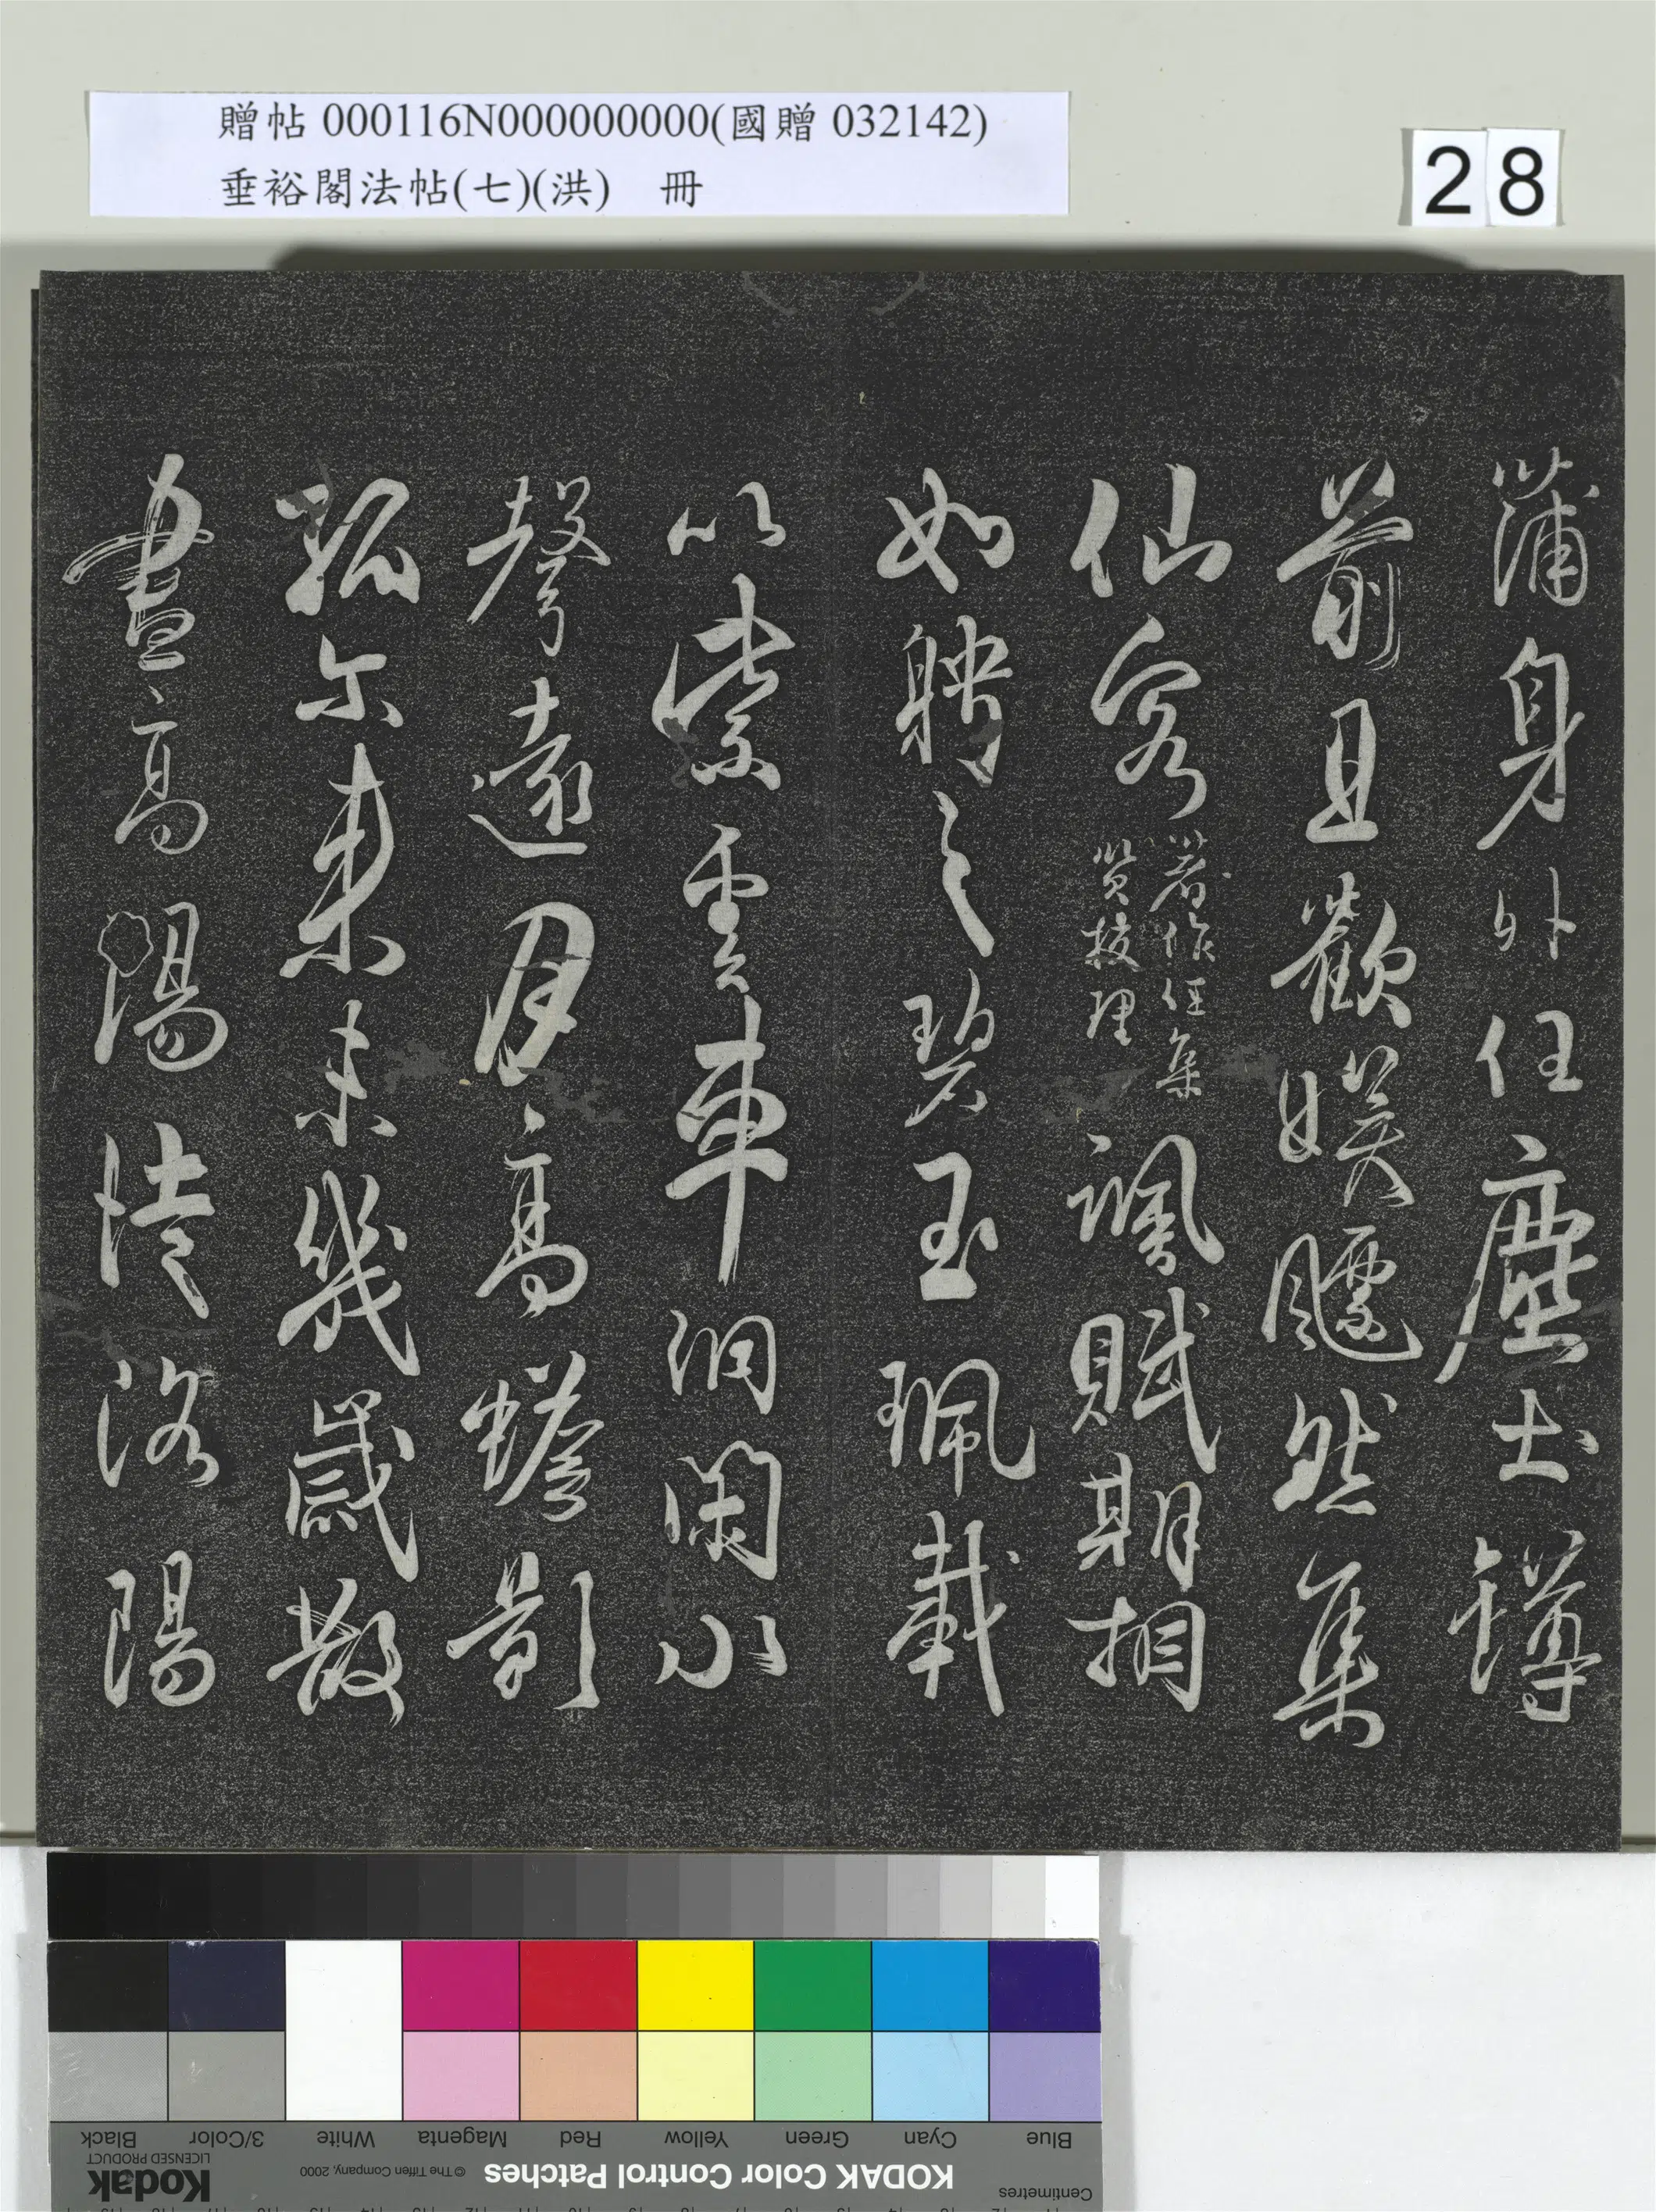 蒲身外任塵土鐏
前且歡娛飃然集
仙客著作任集賢校理諷賦期相
如聘之碧玉珮載
以紫雲車洞閑水
聲遠月高蟾影
孤尓来未幾歲散
盡高陽徒洛陽
贈帖 000116N000000000(國贈 032142)
垂裕閣法帖(七)(洪) 冊
28
Blue Cyan Green Yellow Red Magenta White 3/Color Black
Centimetres KODAK Color Control Patches © The Tiffen Company, 2000 Kodak LICENSED PRODUCT